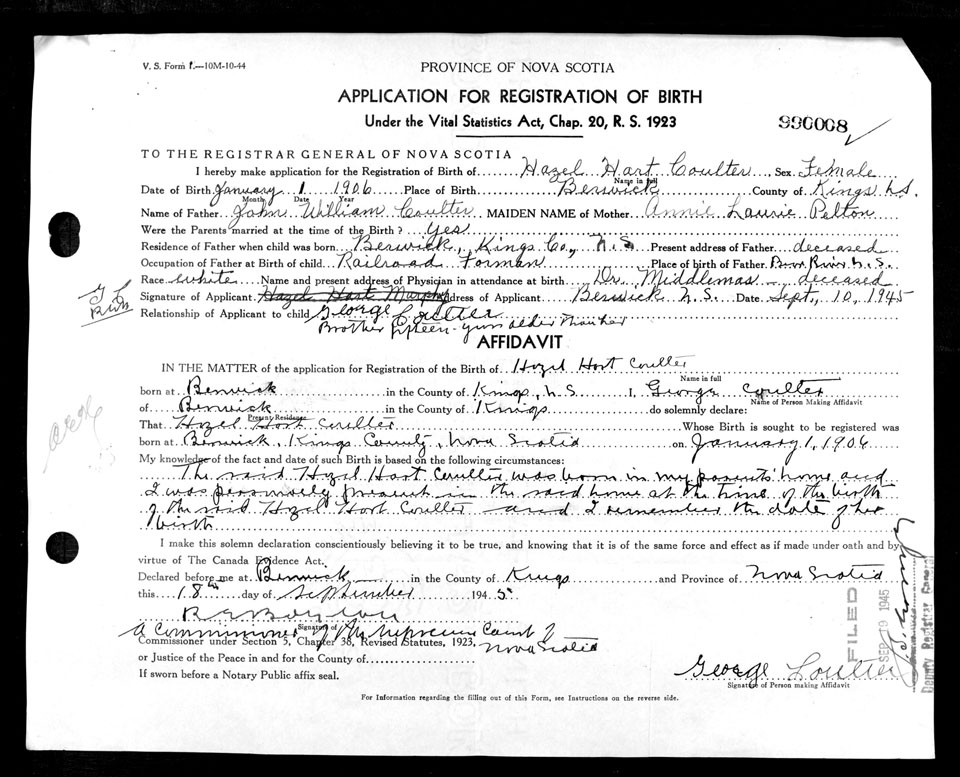 V. S. Form 1.---10M-10-44
PROVINCE OF NOVA SCOTIA
APPLICATION FOR REGISTRATION OF BIRTH
Under the Vital Statistics Act, Chap. 20, R. S. 1923
990008
TO THE REGISTRAR GENERAL OF NOVA SCOTIA
I hereby make application for the Registration of Birth of Hazel Hart Coulter Sex Female
Name in full
Date of Birth January 1 1906 Place of Birth Berwick County of Kings N.S.
Month Date Year
Name of Father John William Coulter MAIDEN NAME of Mother Annie Laurie Pelton
Were the Parents married at the time of the Birth? Yes
Residence of Father when child was born Berwick, Kings Co., N.S Present address of Father deceased
Occupation of Father at Birth of child Railroad Forman Place of birth of Father Bear River N.S.
Race white Name and present address of Physician in attendance at birth Dr. Middlemas - deceased
Signature of Applicant Hazel Hart Murphy Address of Applicant Berwick N.S. Date Sept. 10, 1945
Relationship of Applicant to child George Coulter
Brother fifteen years older than her
AFFIDAVIT
IN THE MATTER of the application for Registration of the Birth of Hazel Hart Coulter
Name in full
born at Berwick in the County of Kings, N.S. I, George Coulter
Name of Person Making Affidavit
of Berwick in the County of Kings do solemnly declare:
Present Residence
That Hazel Hart Coulter Whose Birth is sought to be registered was
born at Berwick, Kings County, Nova Scotia on January 1, 1906
My knowledge of the fact and date of such Birth is based on the following circumstances:
The said Hazel Hart Coulter was born in my parents' home and
I was personally present in the said home at the time of the birth
of the said Hazel Hart Coulter and I remember the date of her
birth
I make this solemn declaration conscientiously believing it to be true, and knowing that it is of the same force and effect as if made under oath and by
virtue of The Canada Evidence Act.
Declared before me at Berwick in the County of Kings and Province of Nova Scotia
this 18th day of September 1945
Signature of
A Commissioner of the Supreme Court of
Nova Scotia
Commissioner under Section 5, Chapter 38, Revised Statutes, 1923,
or Justice of the Peace in and for the County of
If sworn before a Notary Public affix seal.
George Coulter
Signature of Person making Affidavit
FILED
SEP 19 1945
Deputy Registrar General
For Information regarding the filling out of this Form, see Instructions on the reverse side.